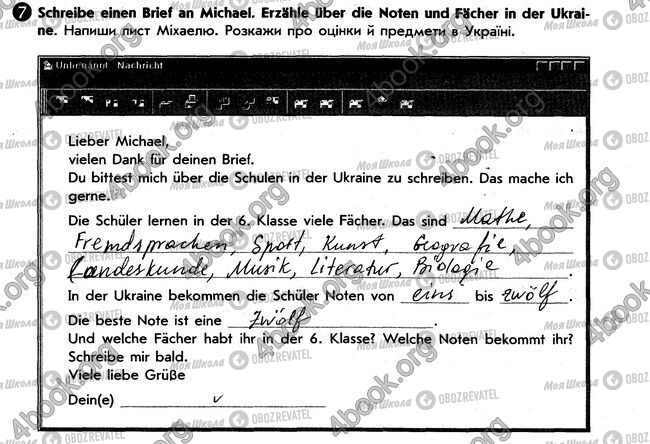 7 Schreibe einen Brief an Michael. Erzähle über die Noten und Fächer in der Ukrai-
ne. Напиши лист Міхаелю. Розкажи про оцінки й предмети в Україні.
Unbenannt Nachricht
Lieber Michael,
vielen Dank für deinen Brief.
Du bittest mich über die Schulen in der Ukraine zu schreiben. Das mache ich
gerne.
Die Schüler lernen in der 6. Klasse viele Fächer. Das sind Mathe,
Fremdsprachen, Sport, Kunst, Geografie,
Landeskunde, Musik, Literatur, Biologie
In der Ukraine bekommen die Schüler Noten von eins bis zwölf.
Die beste Note ist eine zwölf.
Und welche Fächer habt ihr in der 6. Klasse? Welche Noten bekommt ihr?
Schreibe mir bald.
Viele liebe Grüße
Dein(e)
4book.org
Моя Школа
OBOZREVATEL